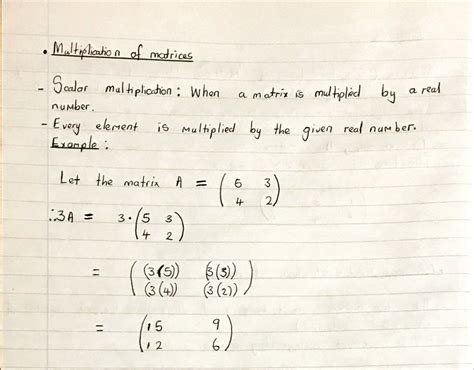 • Multiplication of matrices
- Scalar multiplication : When a matrix is multiplied by a real
number.
- Every element is multiplied by the given real number.
Example :
Let the matrix A = ( 5 3
4 2 )
∴3A = 3·( 5 3
4 2 )
= ( (3(5)) (3(3))
(3(4)) (3(2)) )
= ( 15 9
12 6 )